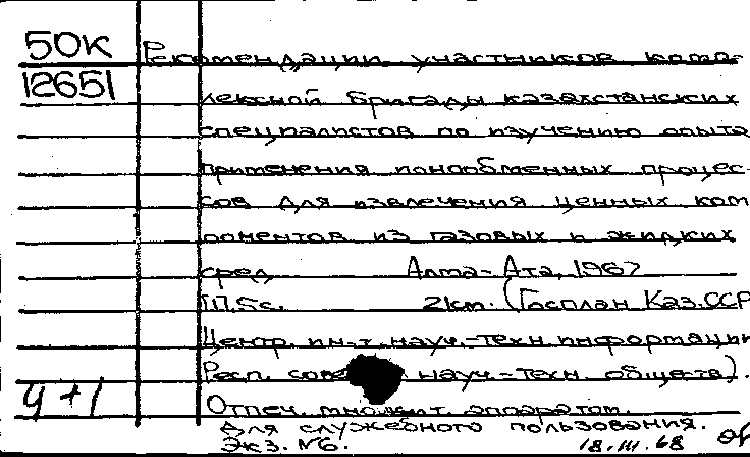 50К Рекомендации участников комп-
12651
лексной бригады казахстанских
специалистов по изучению опыта
применения ионообменных процес-
сов для извлечения ценных ком-
понентов из газовых и жидких
сред Алма-Ата, 1967
117,5с. 21см. (Госплан Каз.ССР
Центр. ин-т. науч.-техн. информации
Респ. сове науч.-техн. обществ).
4+1
Отпеч. множит. аппаратом.
Для служебного пользования.
Экз. №6. 18.III.68